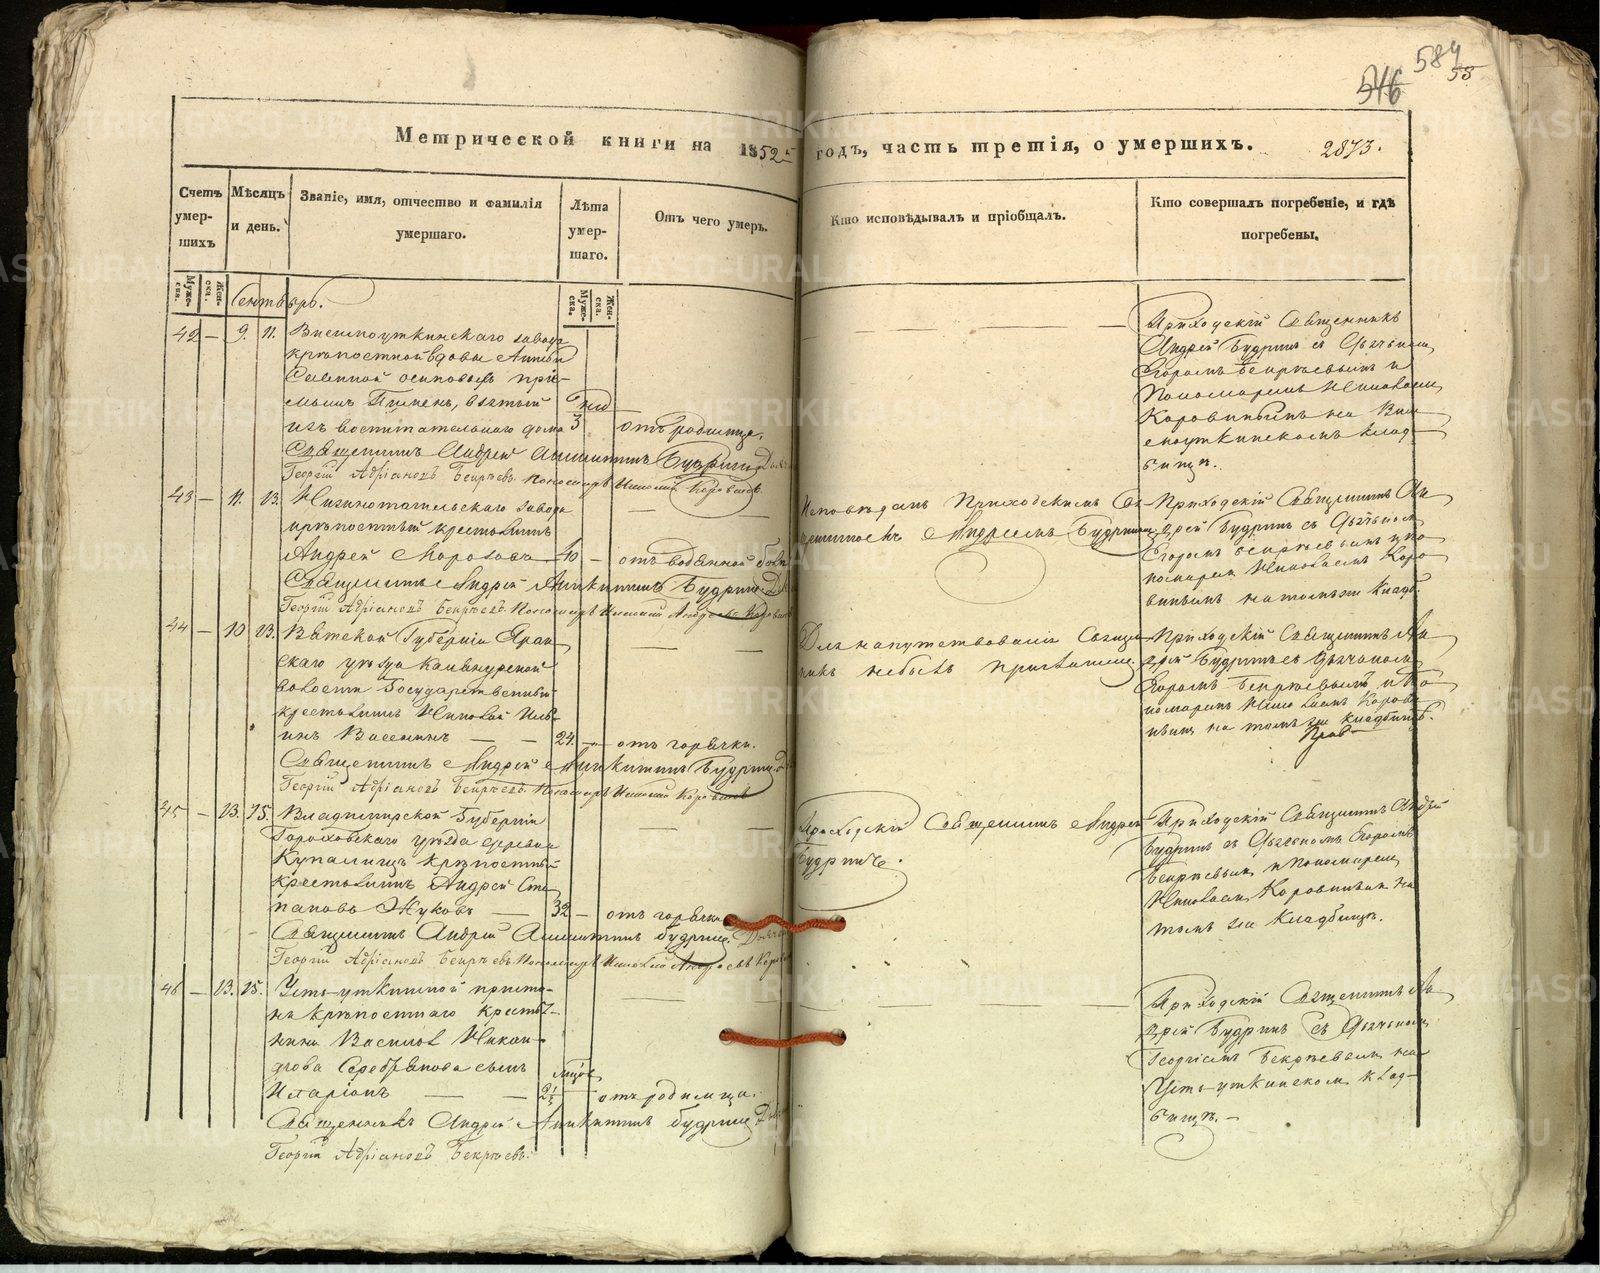 584
55
546
Метрической книги на 1852й годъ, часть третія, о умершихъ. 2873.
Счетъ умер-шихъ
Мѣсяцъ и день.
Званіе, имя, отчество и фамилія умершаго.
Лѣта умер-шаго.
Отъ чего умеръ.
Кто исповѣдывалъ и пріобщалъ.
Кто совершалъ погребеніе, и гдѣ погребены.
Муже-ска.
Жен-ска.
Муже-ска.
Жен-ска.
Сентябрь.
42 — 9. 11. Висимоуткинскаго завода
крѣпостной вдовы Анны
осиповой прі-
емышъ Пименъ, взятый
изъ воспитательнаго дома 3 отъ родимца.
Священникъ Андрей Аникитинъ Будринъ
Георгій Адріановъ Бекрѣевъ. Пономарь Николай Коровинъ.
Приходскій Священникъ
Андрей Будринъ съ Дьячькомъ
Егоромъ Бекрѣевымъ и
Пономаремъ Николаемъ
Коровинымъ на Вис
имоуткинскомъ клад-
бищѣ.
43 — 11. 13. Нижнотагильскаго завода
крѣпостный крестьянинъ
Андрей Морозовъ 40 — отъ водянной болѣ
Священникъ Андрей Аникитинъ Будринъ
Георгій Адріановъ Бекрѣевъ. Пономарь Николай Андреевъ Коровинъ
Исповѣданъ Приходскимъ Свя
щенникомъ Андреемъ Будринымъ
Приходскій Священникъ Ан
дрей Будринъ съ Дьячькомъ
Егоромъ Бекрѣевымъ и по
номаремъ Николаемъ Коро
винымъ на томъ же кладб.
44 — 10 13. Вятской Губерніи Яран
скаго уѣзда
волости Государственный
крестьянинъ Николай
24 — отъ горячки.
Священникъ Андрей Аникитинъ Будринъ
Георгій Адріановъ Бекрѣевъ. Пономарь Николай Коровинъ
Для напутствованія Священ
никъ небылъ приглашенъ.
Приходскій Священникъ Ан
дрей Будринъ съ Дьячькомъ
Егоромъ Бекрѣевымъ и По
номаремъ Николаемъ Корови
нымъ на томъ же кладбищѣ.
45 — 13. 15. Владимирской Губерніи
Гороховскаго уѣзда деревни
крѣпостный
крестьянинъ Андрей Сте
пановъ Жуковъ — 32 — отъ горячки
Священникъ Андрей Аникитинъ Будринъ.
Георгій Адріановъ Бекрѣевъ. Пономарь Николай Андреевъ
Приходскій Священникъ Андрей
Будринъ.
Приходскій Священникъ Андрей
Будринъ съ Дьячькомъ Егоромъ
Бекрѣевымъ и Пономаремъ
Николаемъ Коровинымъ на
томъ же Кладбищѣ.
46 — 13. 15. Усть-уткинской приста-
ни крѣпостнаго крестья-
нина Василья Никан-
дрова Серебрякова сынъ
Иларіонъ — — отъ родимца.
Священникъ Андрей Аникитинъ Будринъ
Георгій Адріановъ Бекрѣевъ.
Приходскій Священникъ Ан
дрей Будринъ съ Дьячькомъ
Георгіемъ Бекрѣевымъ на
Усть-уткинскомъ клад-
бищѣ.